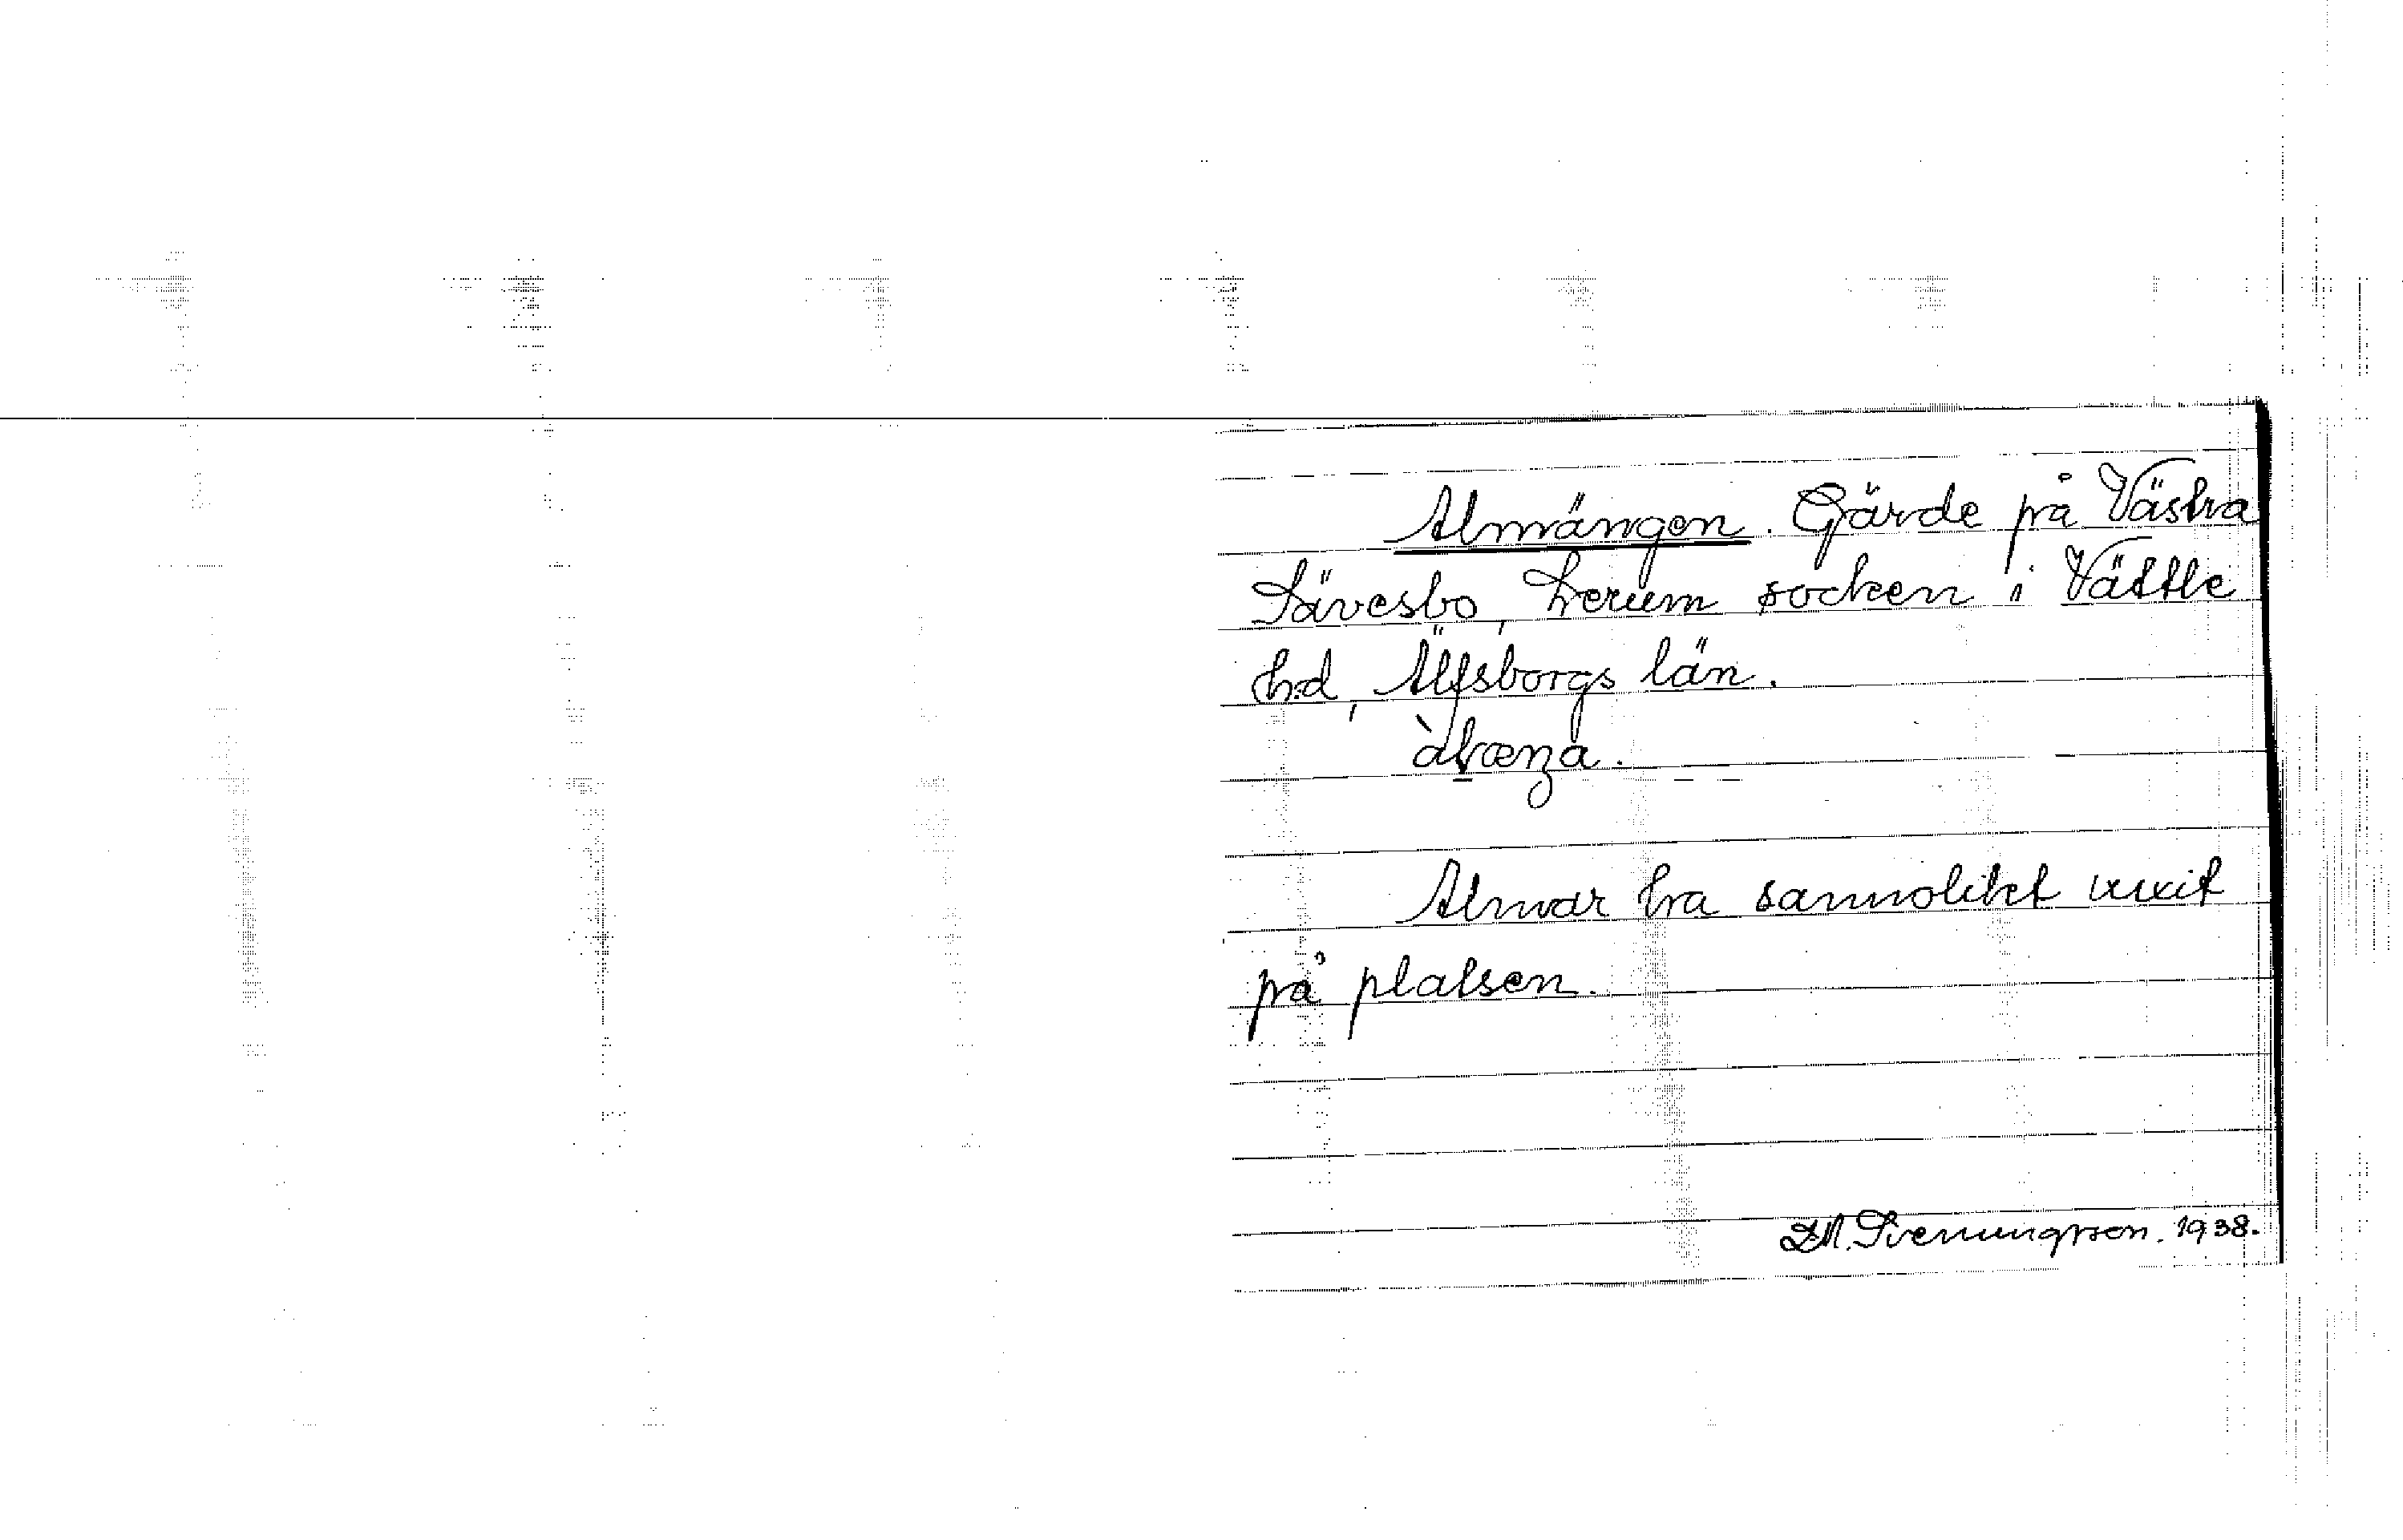 Almängen. Gärde på Västra
Sävesbo, Lerum socken i Vättle
h:d, Älfsborgs län.
Almar ha sannolikt vuxit
på platsen.
D.M. Svenungsson. 1938.